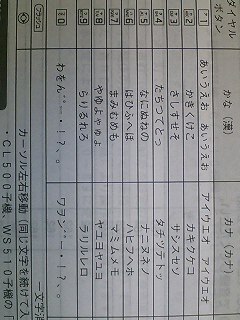 ダイヤルボタン かな(漢) カナ(カナ)
1 あいうえお ぁぃぅぇぉ アイウエオ ァィゥェォ
2 かきくけこ カキクケコ
3 さしすせそ サシスセソ
4 たちつてとっ タチツテトッ
5 なにぬねの ナニヌネノ
6 はひふへほ ハヒフヘホ
7 まみむめも マミムメモ
8 やゆよゃゅょ ヤユヨャュョ
9 らりるれろ ラリルレロ
0 わをん゛゜ー・!?、。 ワヲン゛゜ー・!?、。
フラッシュ 一文字消
カーソル左右移動(同じ字を続けて入
・CL500子機、WS510子機の「